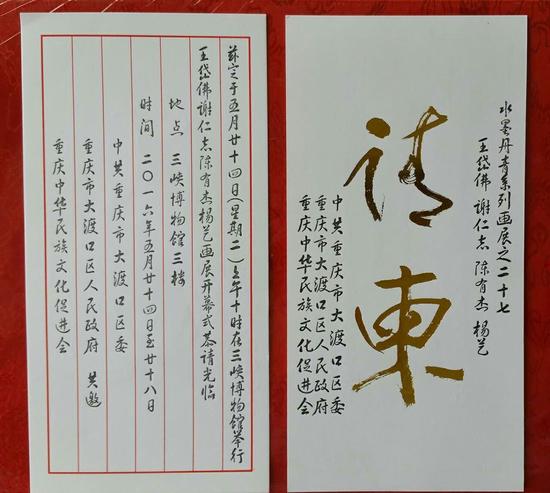 兹定于五月廿十四日(星期二)上午十时在三峡博物馆举行
王岱佛谢仁志陈有杰杨艺画展开幕式恭请光临
地点 三峡博物馆三楼
时间 二〇一六年五月廿十四日至廿十八日
中共重庆市大渡口区委
重庆市大渡口区人民政府 共邀
重庆中华民族文化促进会
水墨丹青系列画展之二十七
王岱佛 谢仁志 陈有杰 杨艺
请柬
中共重庆市大渡口区委
重庆市大渡口区人民政府
重庆中华民族文化促进会